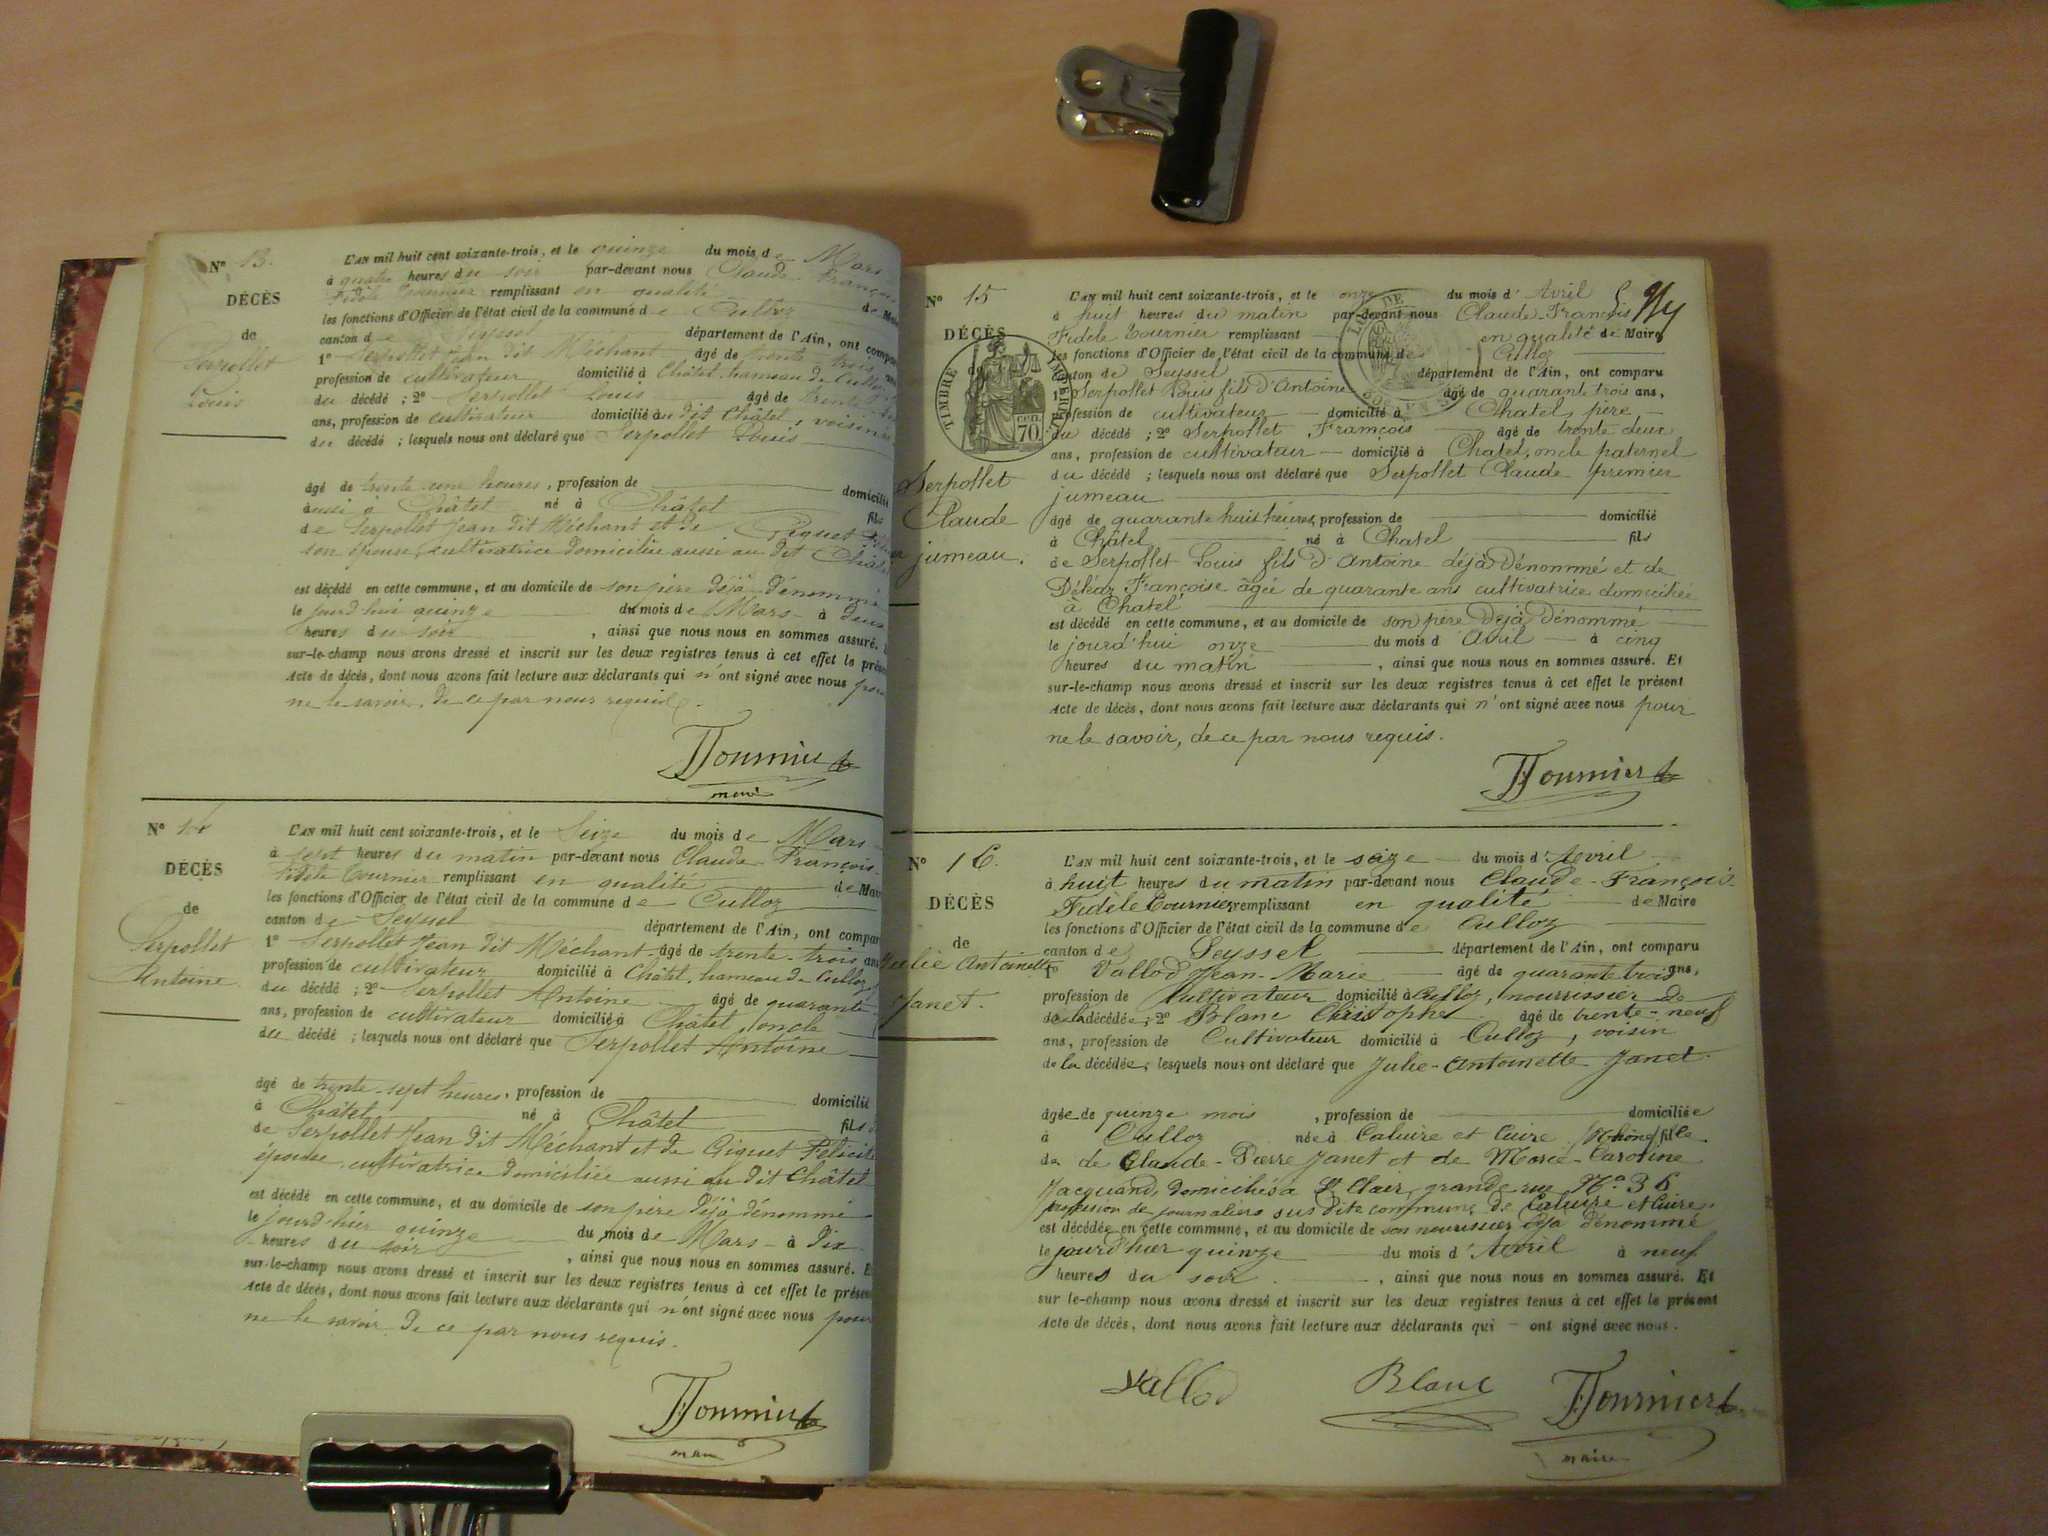 Nº 13.
DÉCÈS
de
Serpollet
Louis
L'AN mil huit cent soixante-trois, et le quinze du mois de Mars
à quatre heures du soir par-devant nous Claude François
Fidèle Tournier remplissant en qualité de Maire
les fonctions d'Officier de l'état civil de la commune de Culloz
canton de Seyssel département de l'Ain, ont comparu
1º Serpollet Jean dit Méchant âgé de trente trois ans
profession de cultivateur domicilié à Châtel, hameau de Culloz
du décédé ; 2º Serpollet Louis âgé de trente
ans, profession de cultivateur domicilié au dit Châtel, voisin
du décédé ; lesquels nous ont déclaré que Serpollet Louis
âgé de trente une heures, profession de domicilié
aussi à Châtel né à Châtel fils
de Serpollet Jean dit Méchant et de Giguet
son épouse, cultivatrice domiciliée aussi au dit Châtel
est décédé en cette commune, et au domicile de son père déjà dénommé
le jourd'hui quinze du mois de Mars à deux
heures du soir , ainsi que nous nous en sommes assuré.
sur-le-champ nous avons dressé et inscrit sur les deux registres tenus à cet effet le présent
Acte de décès, dont nous avons fait lecture aux déclarants qui n'ont signé avec nous pour
ne le savoir, de ce par nous requis.
Tournier
maire
Nº 14
DÉCÈS
de
Serpollet
Antoine
L'AN mil huit cent soixante-trois, et le Seize du mois de Mars
à sept heures du matin par-devant nous Claude François
Fidèle Tournier remplissant en qualité de Maire
les fonctions d'Officier de l'état civil de la commune de Culloz
canton de Seyssel département de l'Ain, ont comparu
1º Serpollet Jean dit Méchant âgé de trente-trois ans
profession de cultivateur domicilié à Châtel, hameau de Culloz
du décédé ; 2º Serpollet Antoine âgé de quarante
ans, profession de cultivateur domicilié à Châtel, oncle
du décédé ; lesquels nous ont déclaré que Serpollet Antoine
âgé de trente-sept heures, profession de domicilié
à Châtel né à Châtel fils
de Serpollet Jean dit Méchant et de Giguet Félicité
épouse, cultivatrice domiciliée aussi au dit Châtel
est décédé en cette commune, et au domicile de son père déjà dénommé
le jourd'hier quinze du mois de Mars à dix
heures du soir , ainsi que nous nous en sommes assuré. Et
sur-le-champ nous avons dressé et inscrit sur les deux registres tenus à cet effet le présent
Acte de décès, dont nous avons fait lecture aux déclarants qui n'ont signé avec nous pour
ne le savoir, de ce par nous requis.
Tournier
maire
Nº 15
DÉCÈS
TIMBRE IMPERIAL
70 CEN.
Serpollet
Claude
jumeau.
L'AN mil huit cent soixante-trois, et le onze du mois d'Avril
à huit heures du matin par-devant nous Claude-François
Fidèle Tournier remplissant en qualité de Maire
les fonctions d'Officier de l'état civil de la commune de Culloz
canton de Seyssel département de l'Ain, ont comparu
1º Serpollet Louis fils d'Antoine âgé de quarante trois ans,
profession de cultivateur domicilié à Chatel, père
du décédé ; 2º Serpollet François âgé de trente deux
ans, profession de cultivateur domicilié à Chatel, oncle paternel
du décédé ; lesquels nous ont déclaré que Serpollet Claude premier
jumeau
âgé de quarante huit heures, profession de domicilié
à Châtel né à Chatel fils
de Serpollet Louis fils d'Antoine déjà dénommé et de
Françoise âgée de quarante ans cultivatrice domiciliée
à Chatel
est décédé en cette commune, et au domicile de son père déjà dénommé
le jourd'hui onze du mois d'Avril à cinq
heures du matin , ainsi que nous nous en sommes assuré. Et
sur-le-champ nous avons dressé et inscrit sur les deux registres tenus à cet effet le présent
Acte de décès, dont nous avons fait lecture aux déclarants qui n'ont signé avec nous pour
ne le savoir, de ce par nous requis.
Tournier
Nº 16.
DÉCÈS
de
Julie Antoinette
Janet.
L'AN mil huit cent soixante-trois, et le seize du mois d'Avril
à huit heures du matin par-devant nous Claude-François-
Fidèle Tournier remplissant en qualité de Maire
les fonctions d'Officier de l'état civil de la commune de Culloz
canton de Seyssel département de l'Ain, ont comparu
1º Vallod Jean-Marie âgé de quarante trois ans,
profession de Cultivateur domicilié à Culloz, nourrissier de
de la décédée ; 2º Blanc Christophe âgé de trente-neuf
ans, profession de Cultivateur domicilié à Culloz, voisin
de la décédée, lesquels nous ont déclaré que Julie-Antoinette Janet.
âgée de quinze mois , profession de domiciliée
à Culloz née à Caluire et Cuire (Rhône) fille
de de Claude-Pierre Janet et de Marie-Caroline
Jacquand, domiciliés à St Clair, grande rue Nº 36
profession de journaliers sus dite commune de Caluire et Cuire.
est décédée en cette commune, et au domicile de son nourissier déjà dénommé
le jourd'hier quinze du mois d'Avril à neuf
heures du soir , ainsi que nous nous en sommes assuré. Et
sur le-champ nous avons dressé et inscrit sur les deux registres tenus à cet effet le présent
Acte de décès, dont nous avons fait lecture aux déclarants qui ont signé avec nous.
Vallod Blanc Tournier
maire